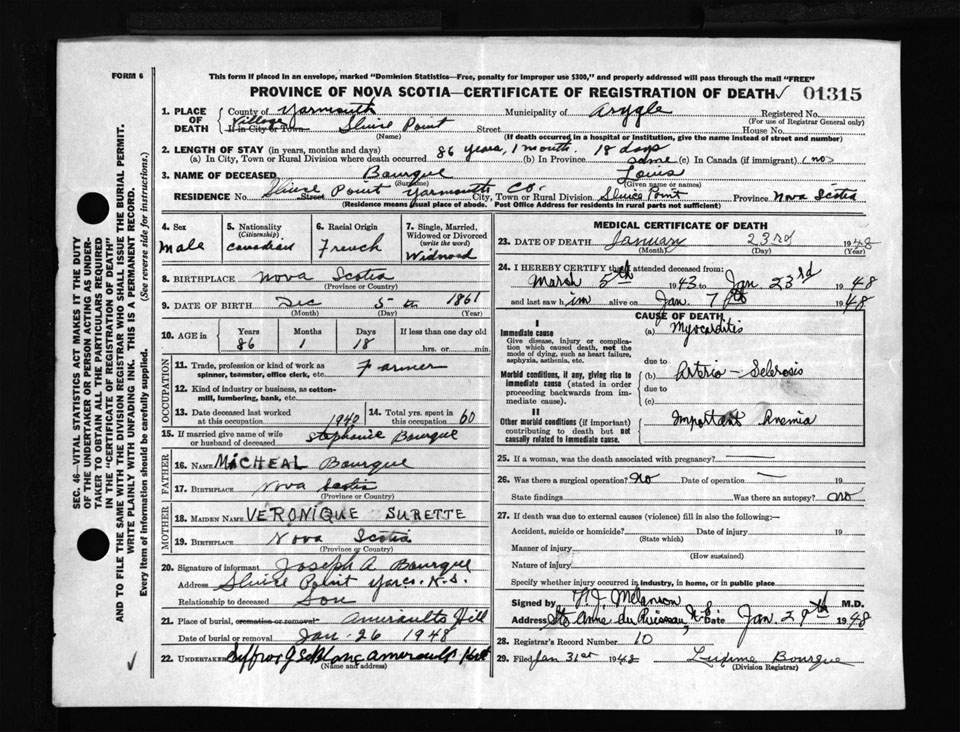 FORM 6
This form if placed in an envelope, marked "Dominion Statistics—Free, penalty for improper use $300," and properly addressed will pass through the mail "FREE"
PROVINCE OF NOVA SCOTIA—CERTIFICATE OF REGISTRATION OF DEATH 01315
1. PLACE OF DEATH County of Yarmouth Municipality of Argyle Registered No.
(For use of Registrar General only)
Village If in City or Town Sluice Point Street House No.
(Name) (If death occurred in a hospital or institution, give the name instead of street and number)
2. LENGTH OF STAY (in years, months and days)
(a) In City, Town or Rural Division where death occurred 86 years, 1 month. 18 days (b) In Province same (c) In Canada (if immigrant) (no)
3. NAME OF DECEASED Bourque Louis
(Surname) (Given name or names)
RESIDENCE No. Sluice Point Yarmouth Co. Street City, Town or Rural Division Sluice Point Province Nova Scotia
(Residence means usual place of abode. Post Office Address for residents in rural parts not sufficient)
4. Sex Male
5. Nationality (Citizenship) Canadian
6. Racial Origin French
7. Single, Married, Widowed or Divorced (write the word) Widowed
8. BIRTHPLACE Nova Scotia
(Province or Country)
9. DATE OF BIRTH Dec 5th 1861
(Month) (Day) (Year)
10. AGE in Years Months Days If less than one day old
86 1 18 hrs. or min.
OCCUPATION
11. Trade, profession or kind of work as spinner, teamster, office clerk, etc. Farmer
12. Kind of industry or business, as cotton-mill, lumbering, bank, etc.
13. Date deceased last worked at this occupation 1940
14. Total yrs. spent in 60
15. If married give name of wife or husband of deceased Stephanie Bourque
FATHER
16. NAME MICHEAL Bourque
17. BIRTHPLACE Nova Scotia
(Province or Country)
MOTHER
18. MAIDEN NAME VERONIQUE SURETTE
19. BIRTHPLACE Nova Scotia
(Province or Country)
20. Signature of informant Joseph A Bourque
Address Sluice Point Yarco. N.S.
Relationship to deceased Son
21. Place of burial, cremation or removal Amiraults Hill
Date of burial or removal Jan-26 1948
22. UNDERTAKER
(Name and address)
MEDICAL CERTIFICATE OF DEATH
23. DATE OF DEATH January 23rd 1948
(Month) (Day) (Year)
24. I HEREBY CERTIFY that I attended deceased from:
March 5th 1943 to Jan. 23rd 1948
and last saw him alive on Jan. 7th 1948
CAUSE OF DEATH
I
Immediate cause (a) Myocarditis
Give disease, injury or complication which caused death, not the mode of dying, such as heart failure, asphyxia, asthenia, etc.
due to
Morbid conditions, if any, giving rise to immediate cause (stated in order proceeding backwards from immediate cause). (b) Arterio-Sclerosis
due to
(c)
II
Other morbid conditions (if important) contributing to death but not causally related to immediate cause. Important Anemia
25. If a woman, was the death associated with pregnancy?
26. Was there a surgical operation? No Date of operation 19
State findings Was there an autopsy? No
27. If death was due to external causes (violence) fill in also the following:-
Accident, suicide or homicide? Date of injury 19
(State which)
Manner of injury
(How sustained)
Nature of injury
Specify whether injury occurred in industry, in home, or in public place
Signed by Melanson M.D.
Address Ste Anne du Ruisseau, N.S. Date Jan. 29th 1948
28. Registrar's Record Number 10
29. Filed Jan 31st 1948 Bourque
(Division Registrar)
SEC. 46—VITAL STATISTICS ACT MAKES IT THE DUTY
OF THE UNDERTAKER OR PERSON ACTING AS UNDERTAKER TO OBTAIN ALL THE PARTICULARS REQUIRED
IN THE "CERTIFICATE OF REGISTRATION OF DEATH"
AND TO FILE THE SAME WITH THE DIVISION REGISTRAR WHO SHALL ISSUE THE BURIAL PERMIT.
WRITE PLAINLY WITH UNFADING INK. THIS IS A PERMANENT RECORD.
Every item of information should be carefully supplied. (See reverse side for instructions.)